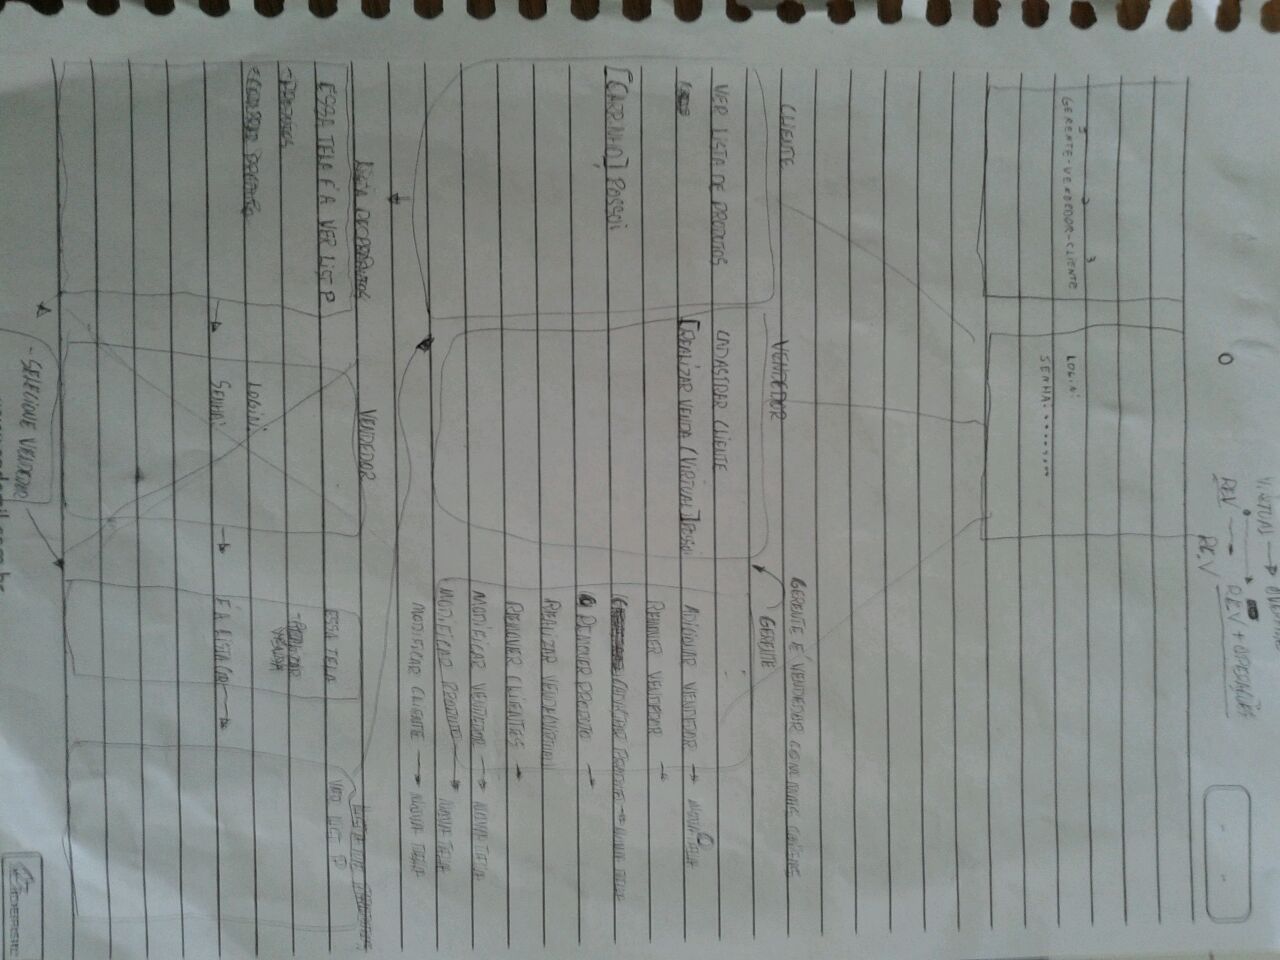 VIRTUAL → OVERRIDE
REV → REV + OPERAÇÕES
REV
1 2 3
GERENTE-VENDEDOR-CLIENTE
LOGIN:
SENHA: ........
CLIENTE
VER LISTA DE PRODUTOS
[CARRINHO] POSSUI
VENDEDOR
CADASTRAR CLIENTE
[REALIZAR VENDA (VIRTUAL] POSSUI
GERENTE É VENDEDOR COM MAIS COISAS
GERENTE
ADICIONAR VENDEDOR → NOVA TELA
REMOVER VENDEDOR →
CADASTRAR PRODUTO → NOVA TELA
REMOVER PRODUTO →
REALIZAR VENDA (VIRTUAL)
REMOVER CLIENTES →
MODIFICAR VENDEDOR → NOVA TELA
MODIFICAR PRODUTO → NOVA TELA
MODIFICAR CLIENTE → NOVA TELA
LISTA DE PRODUTOS
ESSA TELA É A VER LIST P
- PRODUTOS
VENDEDOR
LOGIN:
SENHA:
ESSA TELA
- REALIZAR
VENDA
É A LISTA
VER LIST P
- SELECIONE VENDEDOR